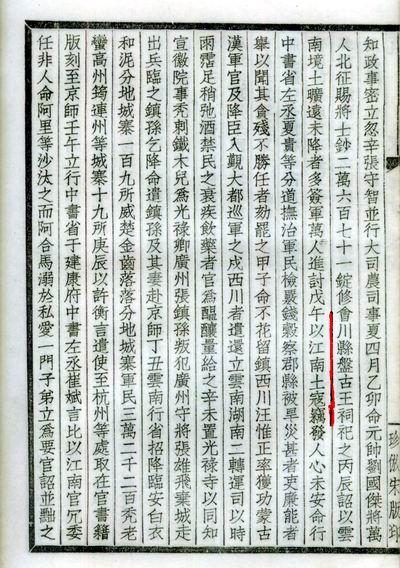 知政事密立忽辛張守智並行大司農司事夏四月乙卯命元帥劉國傑將萬
人北征賜將士鈔二萬六百七十一錠修會川縣盤古王祠祀之丙辰詔以雲
南境土曠遠未降者多簽軍萬人進討戊午以江南土寇竊發人心未安命行
中書省左丞夏貴等分道撫治軍民檢覈錢穀察郡縣被旱災甚者吏廉能者
舉以聞其貪殘不勝任者劾罷之甲子命不花留鎮西川汪惟正率獲功蒙古
漢軍官及降臣入覲大都巡軍之戍西川者遣還立雲南湖南二轉運司以時
雨霑足稍弛酒禁民之衰疾飲藥者官爲醞釀量給之辛未置光祿寺以同知
宣徽院事禿剌鐵木兒爲光祿卿廣州張鎮孫叛犯廣州守將張雄飛棄城走
出兵臨之鎮孫乞降命遣鎮孫及其妻赴京師丁丑雲南行省招降臨安白衣
和泥分地城寨一百九所威楚金齒落落分地城寨軍民三萬二千二百禿老
蠻高州筠連州等城寨十九所庚辰以許衡言遣使至杭州等處取在官書籍
版刻至京師壬午立行中書省于建康府中書左丞崔斌言比以江南官冗委
任非人命阿里等沙汰之而阿合馬溺於私愛一門子弟立爲要官詔並黜之
珍倣宋版印